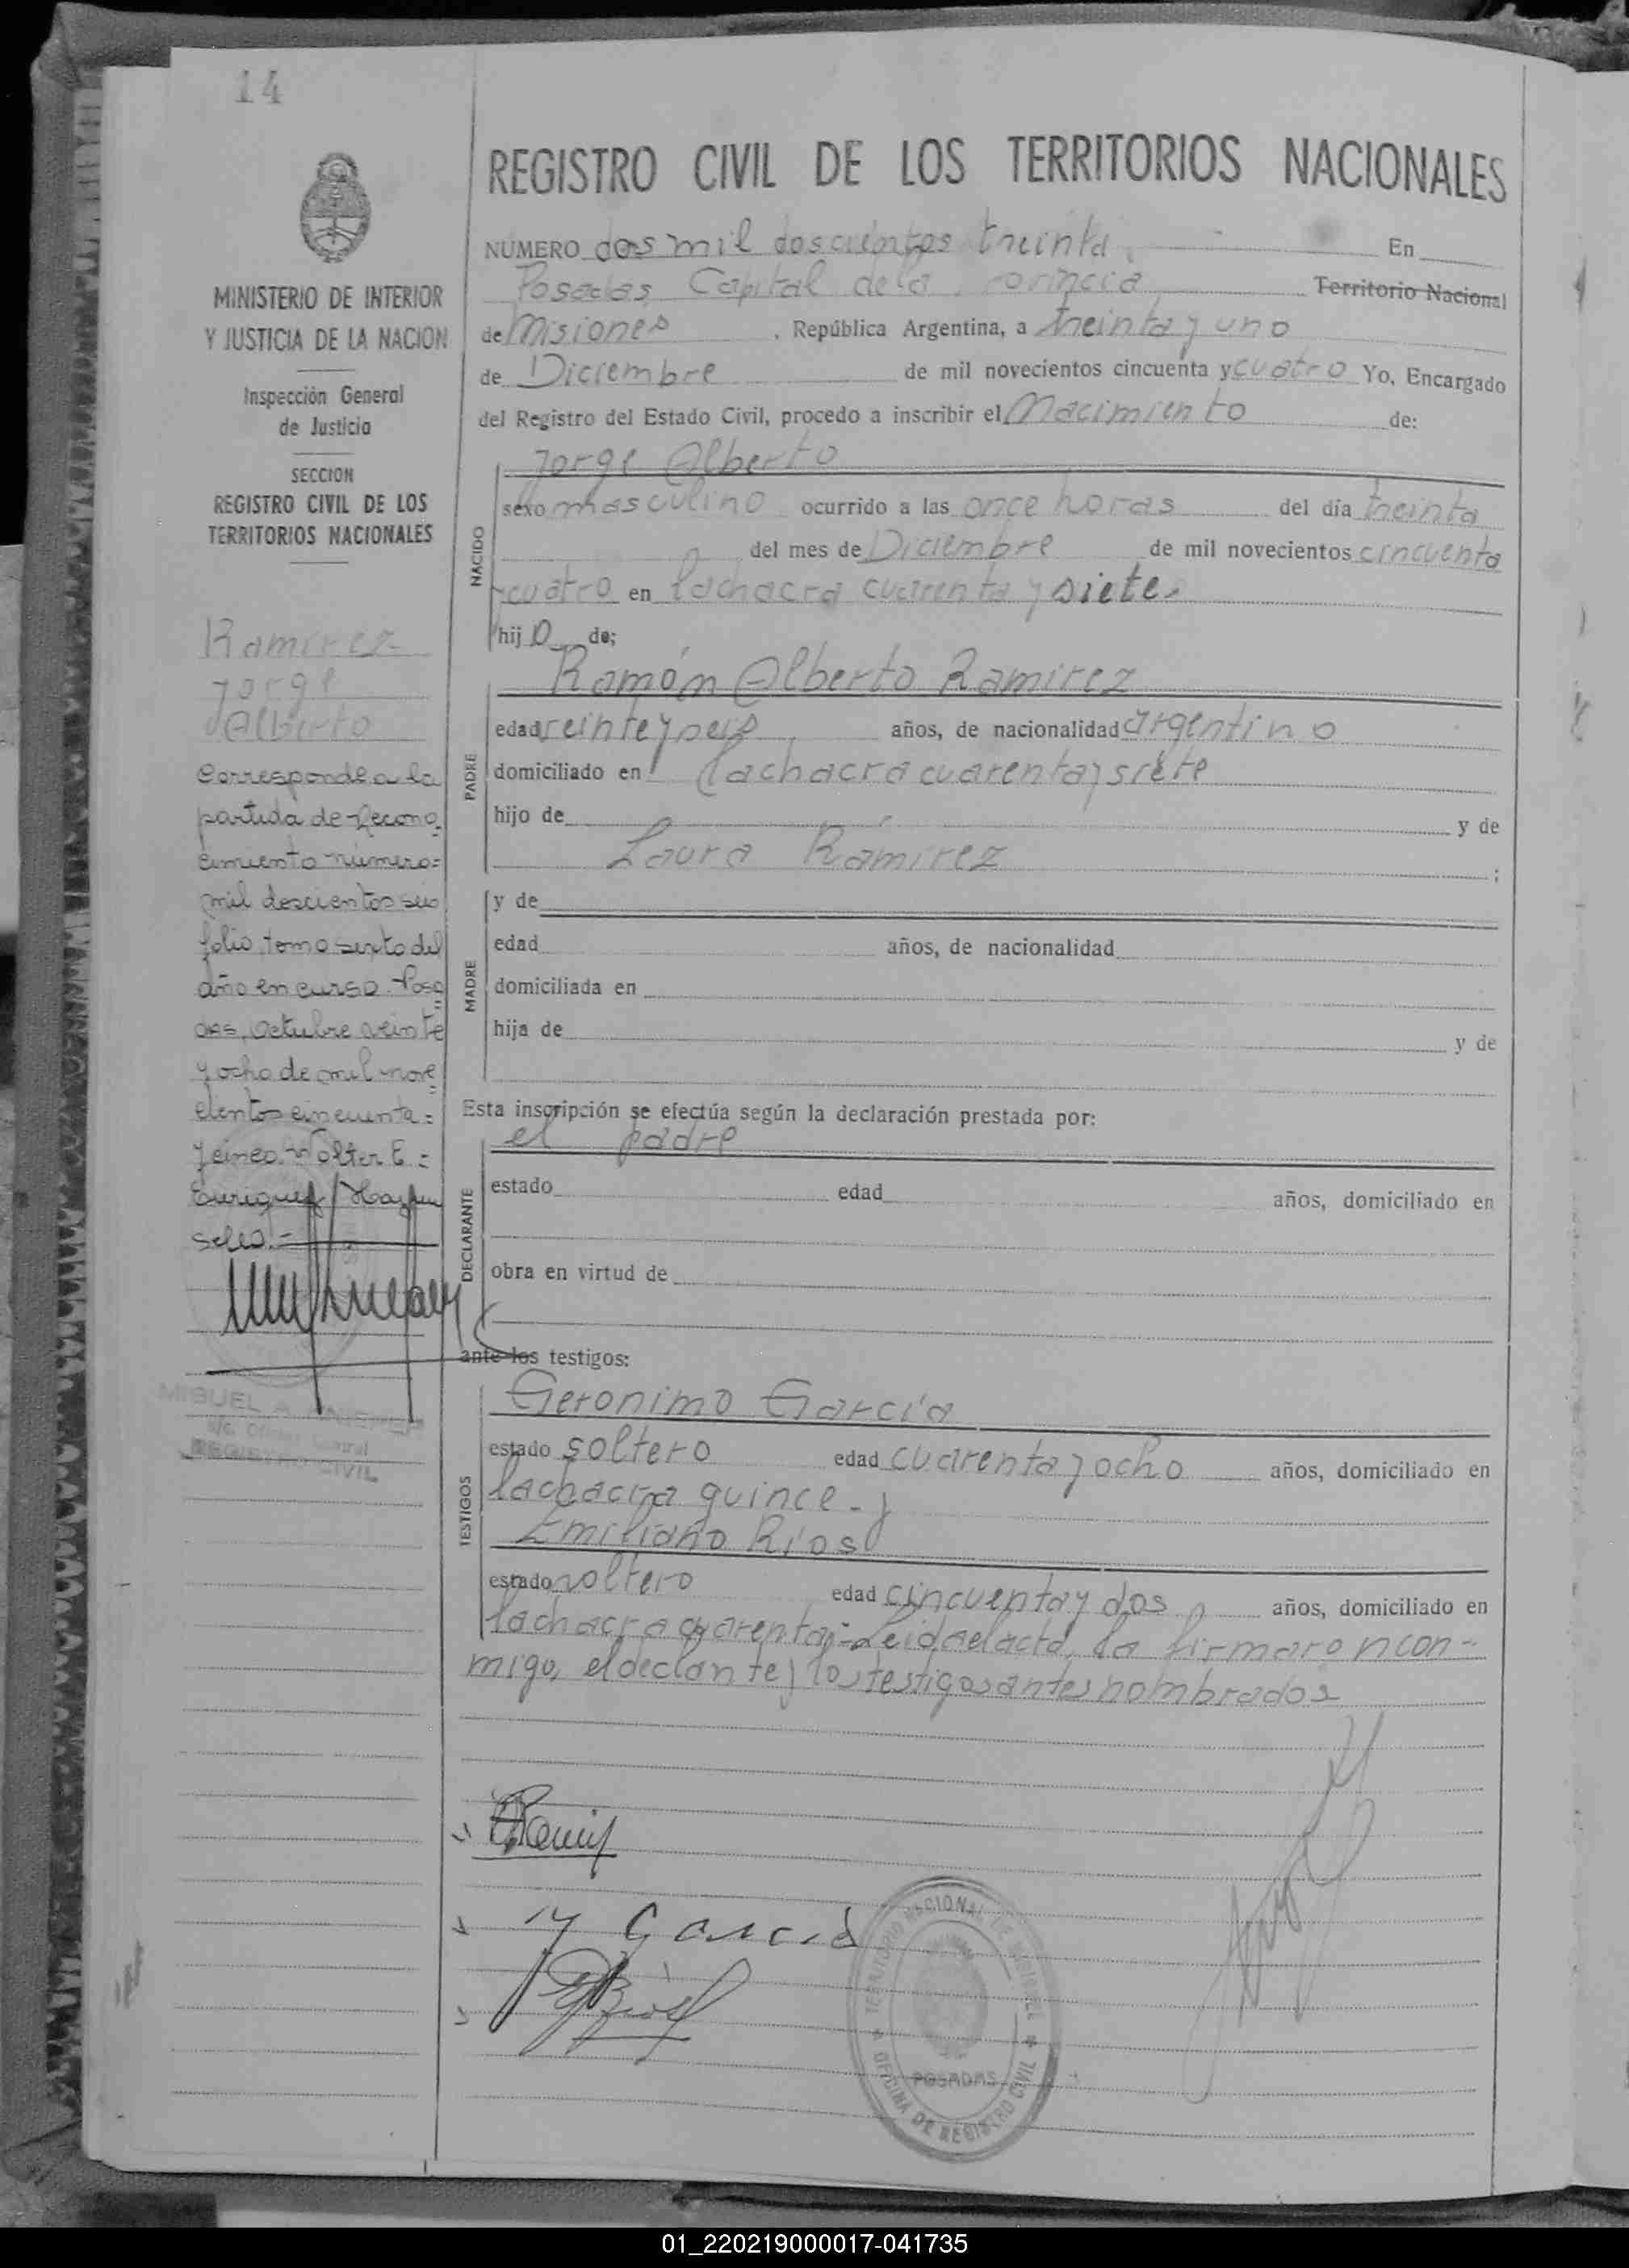 14
REGISTRO CIVIL DE LOS TERRITORIOS NACIONALES
MINISTERIO DE INTERIOR
Y JUSTICIA DE LA NACION
Inspección General
de Justicia
SECCION
REGISTRO CIVIL DE LOS
TERRITORIOS NACIONALES
Ramirez
Jorge
Alberto
Corresponde a la
partida de recono
cimiento número=
mil doscientos seis
folio, tomo sexto del
año en curso. Posa
das, Octubre veinte
y ocho de mil nove
cientos cincuenta=
y cinco. Walter E.=
Enriquez
Sello.-
MIGUEL A.
REGISTRO CIVIL
NUMERO dos mil doscientos treinta En
Posadas Capital de la Provincia Territorio Nacional
de Misiones, República Argentina, a treinta y uno
de Diciembre de mil novecientos cincuenta y cuatro Yo, Encargado
del Registro del Estado Civil, procedo a inscribir el Nacimiento de:
NACIDO
Jorge Alberto
sexo masculino ocurrido a las once horas del día treinta
del mes de Diciembre de mil novecientos cincuenta
y cuatro en la chacra cuarenta y siete.
hijo de;
PADRE
Ramón Alberto Ramirez
edad veinte y seis años, de nacionalidad argentino
domiciliado en la chacra cuarenta y siete
hijo de y de
Laura Ramírez ;
MADRE
y de
edad años, de nacionalidad
domiciliada en
hija de y de
Esta inscripción se efectúa según la declaración prestada por:
DECLARANTE
el padre
estado edad años, domiciliado en
obra en virtud de
ante los testigos:
TESTIGOS
Geronimo García
estado soltero edad cuarenta y ocho años, domiciliado en
la chacra quince - y
Emiliano Ríos
estado soltero edad cincuenta y dos años, domiciliado en
la chacra cuarenta.- Leida el acta, la firmaron con-
migo, el declante y los testigos antes nombrados
Garcia
TERRITORIO NACIONAL DE MISIONES
POSADAS
OFICINA DE REGISTRO CIVIL
01_220219000017-041735